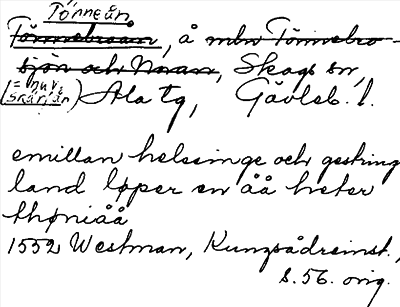 Tönneån
Tönnebroån, å mlm Tönnebro-
sjön och Noran, Skogs sn,
(= nuv. Skärjån) Ala tg, Gävleb. l.
emillan helssinge och gestring
land løper en åå heter
thøniåå
1552 Westman, Kungsådreinst.,
s. 56. orig.